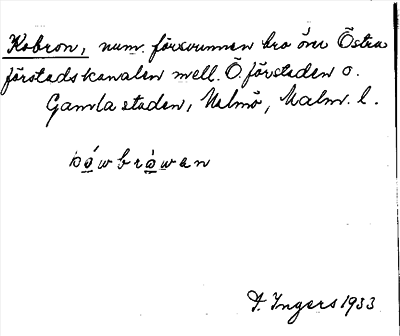 Kobron, num. försvunnen bro över Östra
förstadskanalen mell. Ö. förstaden o.
Gamla staden, Malmö, Malm. l.
I. Ingers 1933